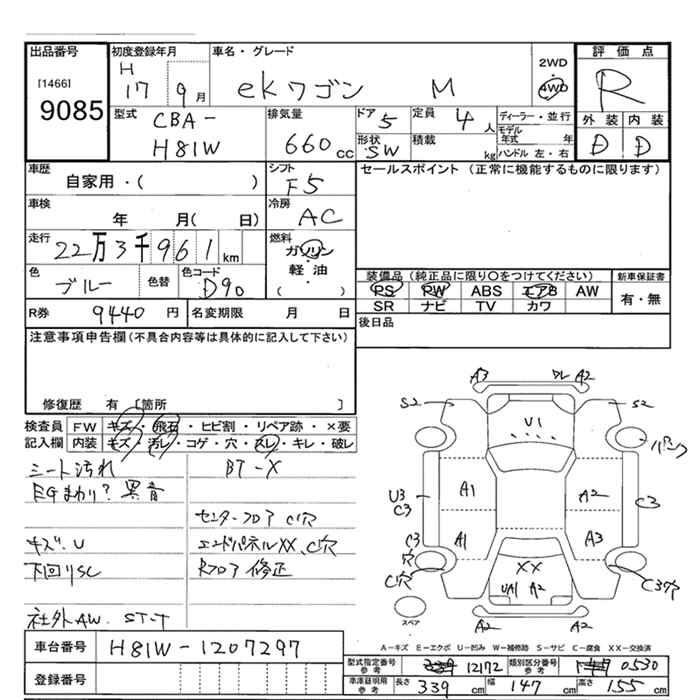 出品番号 初度登録年月 車名・グレード 評価点
[1466] H 17 9月 ekワゴン M 2WD 4WD R
9085
型式 CBA- H81W 排気量 660cc ドア 5 定員 4人 ディーラー・並行 外装 内装
形状 SW 積載 kg モデル年式 年 D D
ハンドル 左・右
車歴 自家用・( ) シフト F5 セールスポイント (正常に機能するものに限ります)
車検 年 月( 日) 冷房 AC
走行 22万3千961km 燃料 ガソリン
軽油
( )
色 ブルー 色替 色コード D90 装備品 (純正品に限り○をつけてください) 新車保証書
PS PW ABS エアB AW 有・無
R券 9440円 名変期限 月 日 SR ナビ TV カワ
注意事項申告欄(不具合内容等は具体的に記入して下さい) 後日品
修復歴 有 [箇所 ]
検査員 FW キズ・飛石・ヒビ割・リペア跡・×要
記入欄 内装 キズ・汚レ・コゲ・穴・スレ・キレ・破レ
シート汚れ BT-X
EGまわり?異音
センターフロアC穴
キズ.U エンドパネルXX、C穴
下回りSC Rフロア修正
社外AW. ST-T
A3 A2
S2 S2
U1
パンク
A1 A2
U3 C3 C3
C3 A1 A3
穴
C穴 XX C3穴
UA1 A2
スペア A2 A2
A-キズ E-エクボ U-凹み W-補修跡 S-サビ C-腐食 XX-交換済
車台番号 H81W-1207297
登録番号
型式指定番号 参考 12172 類別区分番号 参考 0530
車庫証明用 参考 長さ 339cm 幅 147cm 高さ 155cm